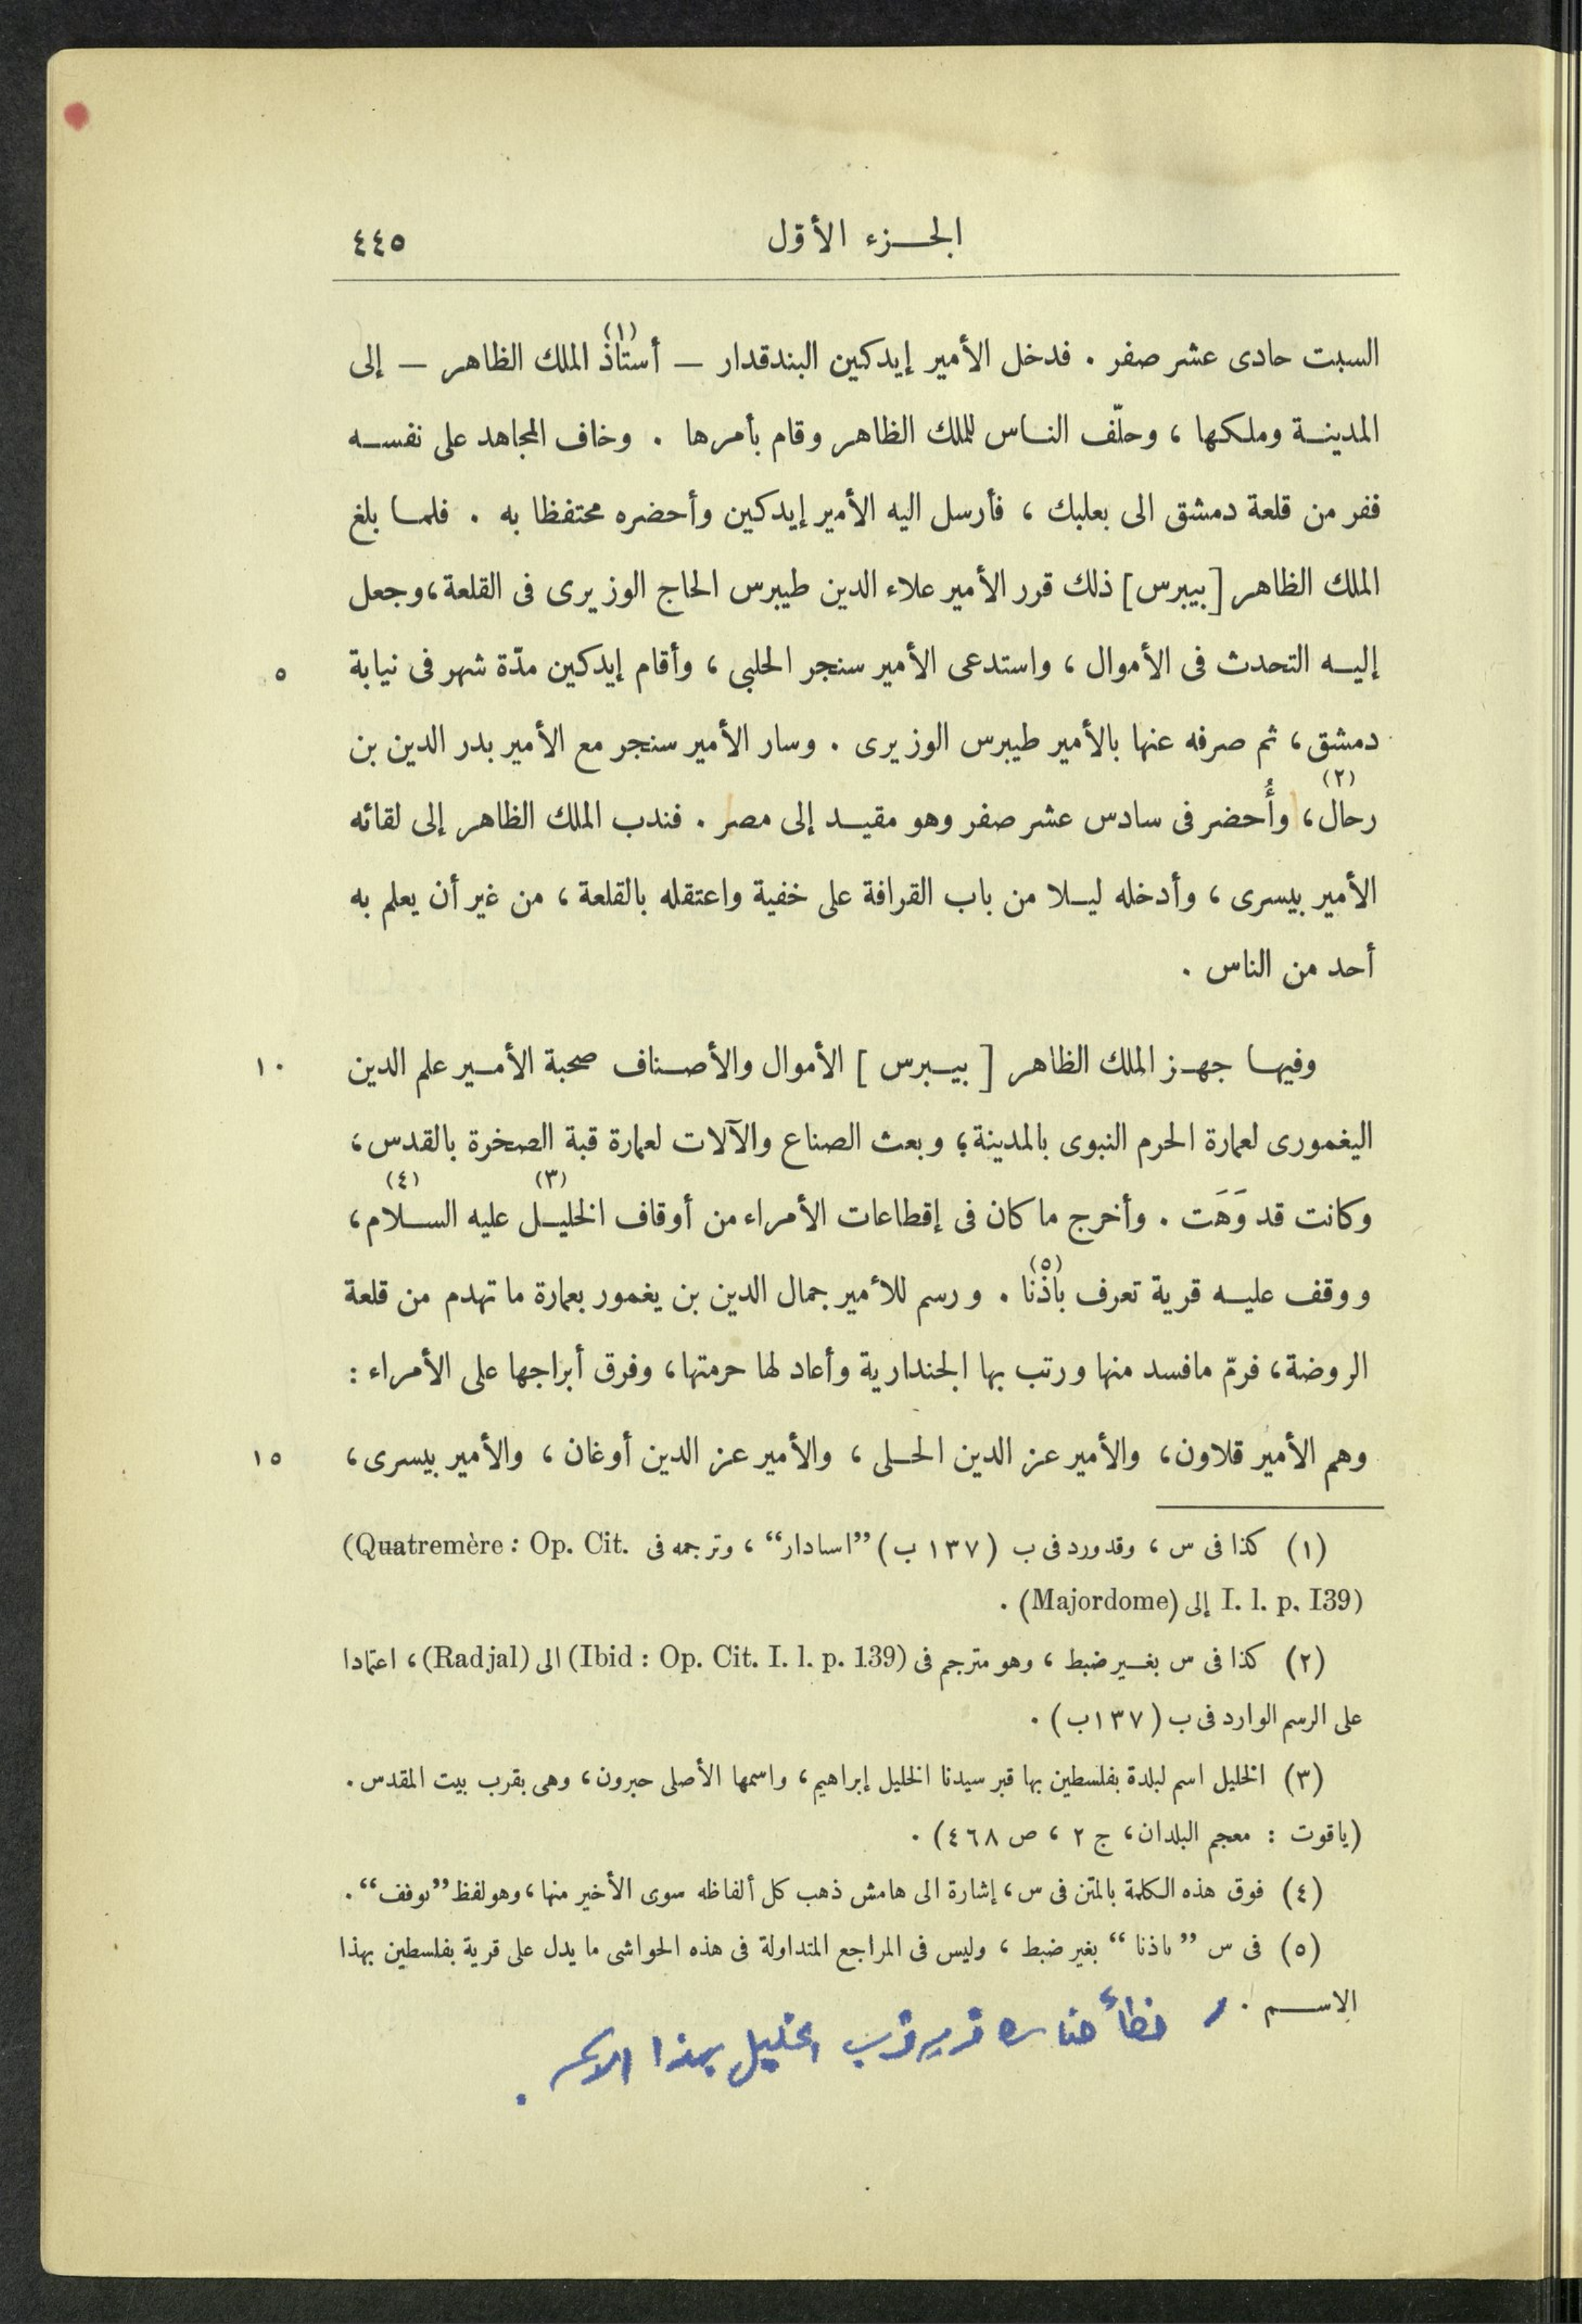 الجزء الأوّل ٤٤٥
السبت حادى عشر صفر . فدخل الأمير إيدكين البندقدار — أستاذ(١) الملك الظاهر — إلى
المدينة وملكها ، وحلّف الناس للملك الظاهر وقام بأمرها . وخاف المجاهد على نفسه
ففر من قلعة دمشق الى بعلبك ، فأرسل اليه الأمير إيدكين وأحضره محتفظا به . فلما بلغ
الملك الظاهر [بيبرس] ذلك قرر الأمير علاء الدين طيبرس الحاج الوزيرى فى القلعة، وجعل
إليه التحدث فى الأموال ، واستدعى الأمير سنجر الحلبى ، وأقام إيدكين مدّة شهر فى نيابة ٥
دمشق، ثم صرفه عنها بالأمير طيبرس الوزيرى . وسار الأمير سنجر مع الأمير بدر الدين بن
رحال(٢)، وأُحضر فى سادس عشر صفر وهو مقيد إلى مصر . فندب الملك الظاهر إلى لقائه
الأمير بيسرى ، وأدخله ليلا من باب القرافة على خفية واعتقله بالقلعة ، من غير أن يعلم به
أحد من الناس .
وفيها جهز الملك الظاهر [ بيبرس ] الأموال والأصناف صحبة الأمير علم الدين ١٠
اليغمورى لعمارة الحرم النبوى بالمدينة؛ وبعث الصناع والآلات لعمارة قبة الصخرة بالقدس،
وكانت قد وَهَت . وأخرج ما كان فى إقطاعات الأمراء من أوقاف الخليل(٣) عليه السلام(٤)،
ووقف عليه قرية تعرف باذْنا(٥) . ورسم للأمير جمال الدين بن يغمور بعمارة ما تهدم من قلعة
الروضة، فرمّ مافسد منها ورتب بها الجندارية وأعاد لها حرمتها، وفرق أبراجها على الأمراء :
وهم الأمير قلاون، والأمير عز الدين الحلى ، والأمير عز الدين أوغان ، والأمير بيسرى، ١٥
(١) كذا فى س ، وقد ورد فى ب (١٣٧ ب) ”اسادار“ ، وترجمه فى (Quatremère : Op. Cit.
I. l. p. I39) إلى (Majordome) .
(٢) كذا فى س بغير ضبط ، وهو مترجم فى (Ibid : Op. Cit. I. l. p. 139) الى (Radjal)، اعتمادا
على الرسم الوارد فى ب (١٣٧ب) .
(٣) الخليل اسم لبلدة بفلسطين بها قبر سيدنا الخليل إبراهيم، واسمها الأصلى حبرون، وهى بقرب بيت المقدس .
(ياقوت : معجم البلدان، ج ٢ ، ص ٤٦٨) .
(٤) فوق هذه الكلمة بالمتن فى س، إشارة الى هامش ذهب كل ألفاظه سوى الأخير منها، وهو لفظ ”ىوفف“ .
(٥) فى س ”ىاذنا“ بغير ضبط ، وليس فى المراجع المتداولة فى هذه الحواشى ما يدل على قرية بفلسطين بهذا
الاسم .
خطأ هناك قرية قرب الخليل بهذا الاسم .